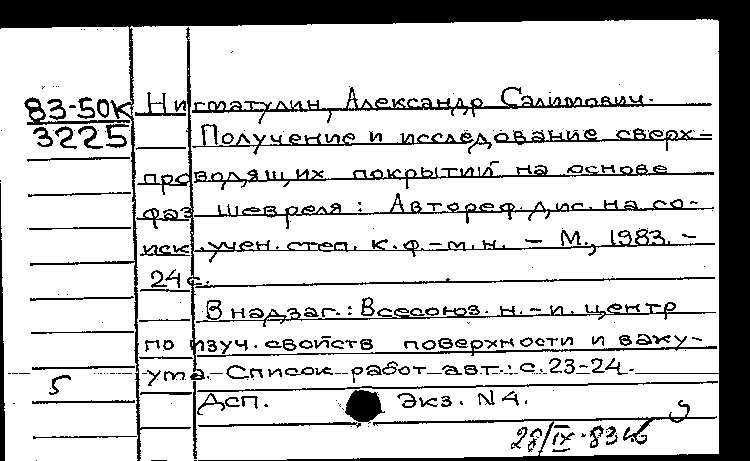 83-50К Нигматулин, Александр Салимович.
3225 Получение и исследование сверх-
проводящих покрытий на основе
фаз Шевреля: Автореф. дис. на со-
иск. учен. степ. к.ф.-м.н. – М., 1983. –
24 с.
В надзаг.: Всесоюз. н.-и. центр
по изуч. свойств поверхности и ваку-
ума. Список работ авт.: с. 23-24.
5
Дсп. Экз. N 4.
28/IX-83